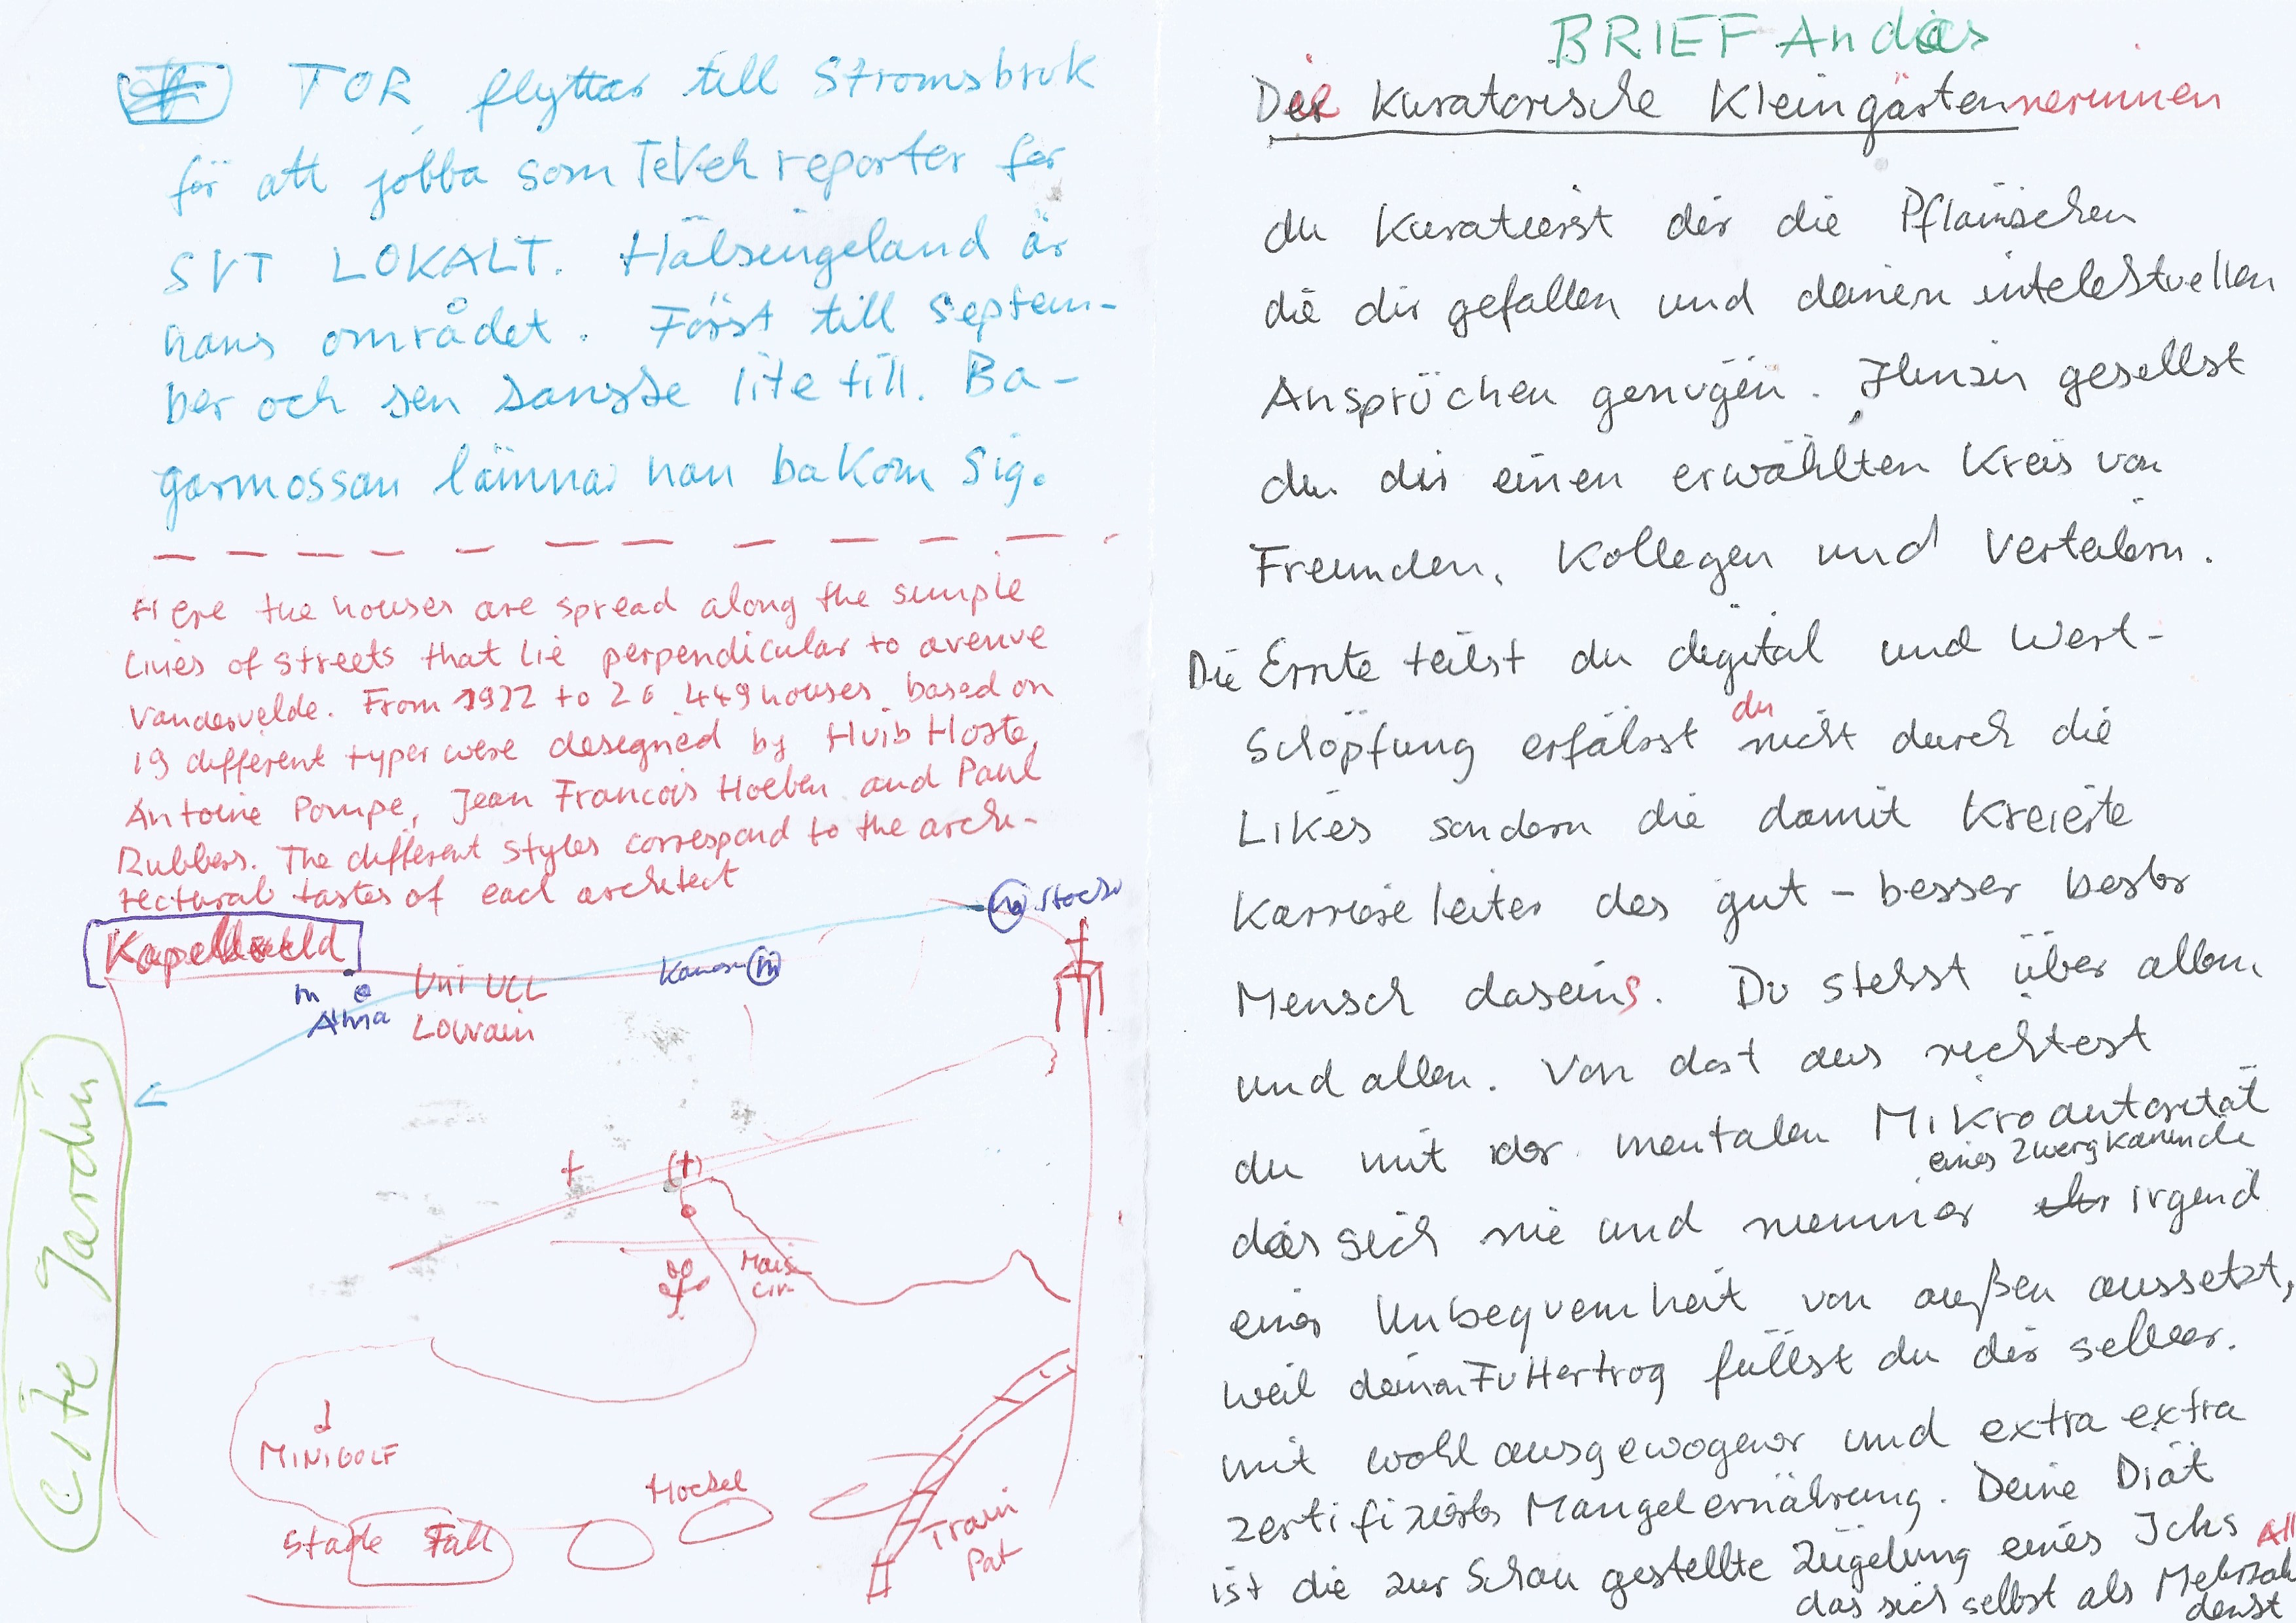 TOR flyttar till Stromsbruk
för att jobba som TeKeh reporter for
SVT LOKALT. Hälsingeland är
hans området. Först till septem-
ber och sen kanske lite till. Ba-
garmossan lämnar han bakom sig.
Here the houses are spread along the simple
lines of streets that lie perpendicular to avenue
Vandervelde. From 1922 to 26 449 houses based on
19 different types were designed by Huib Hoste,
Antoine Pompe, Jean Francois Hoeben and Paul
Rubbers. The different styles correspond to the archi-
tectural tastes of each architect
Kapelleveld
m Stock
m
Alma
Uni UCL
Louvain
m
Cite Jardin
(†)
Mais
Cin
MINIGOLF
Stade Fall
Hockel
Train
Pat
BRIEF An das
Die kuratorische Kleingärtennerinnen
du kuratierst dir die Pflänzchen
die dir gefallen und deinen intelektuellen
Ansprüchen genügen. Hinzu gesellst
du dir einen erwählten Kreis von
Freunden, Kollegen und Verteilern.
Die Ernte teilst du digital und Wert-
schöpfung erfährst du nicht durch die
Likes sondern die damit kreierte
Karriereleiter des gut - besser bester
Mensch daseins. Du stehst über allem
und allen. Von dort aus richtest
du mit der mentalen Mikroautorität
eines Zwergkaninchen
das sich nie und nimmer irgend
einer Unbequemheit von außen aussetzt,
weil deinen Futtertrog füllst du dir selber.
mit wohl ausgewogener und extra extra
zertifizierter Mangelernährung. Deine Diät
ist die zur Schau gestellte Zügelung eines Ichs All
das sich selbst als Mehrzahl
denkt